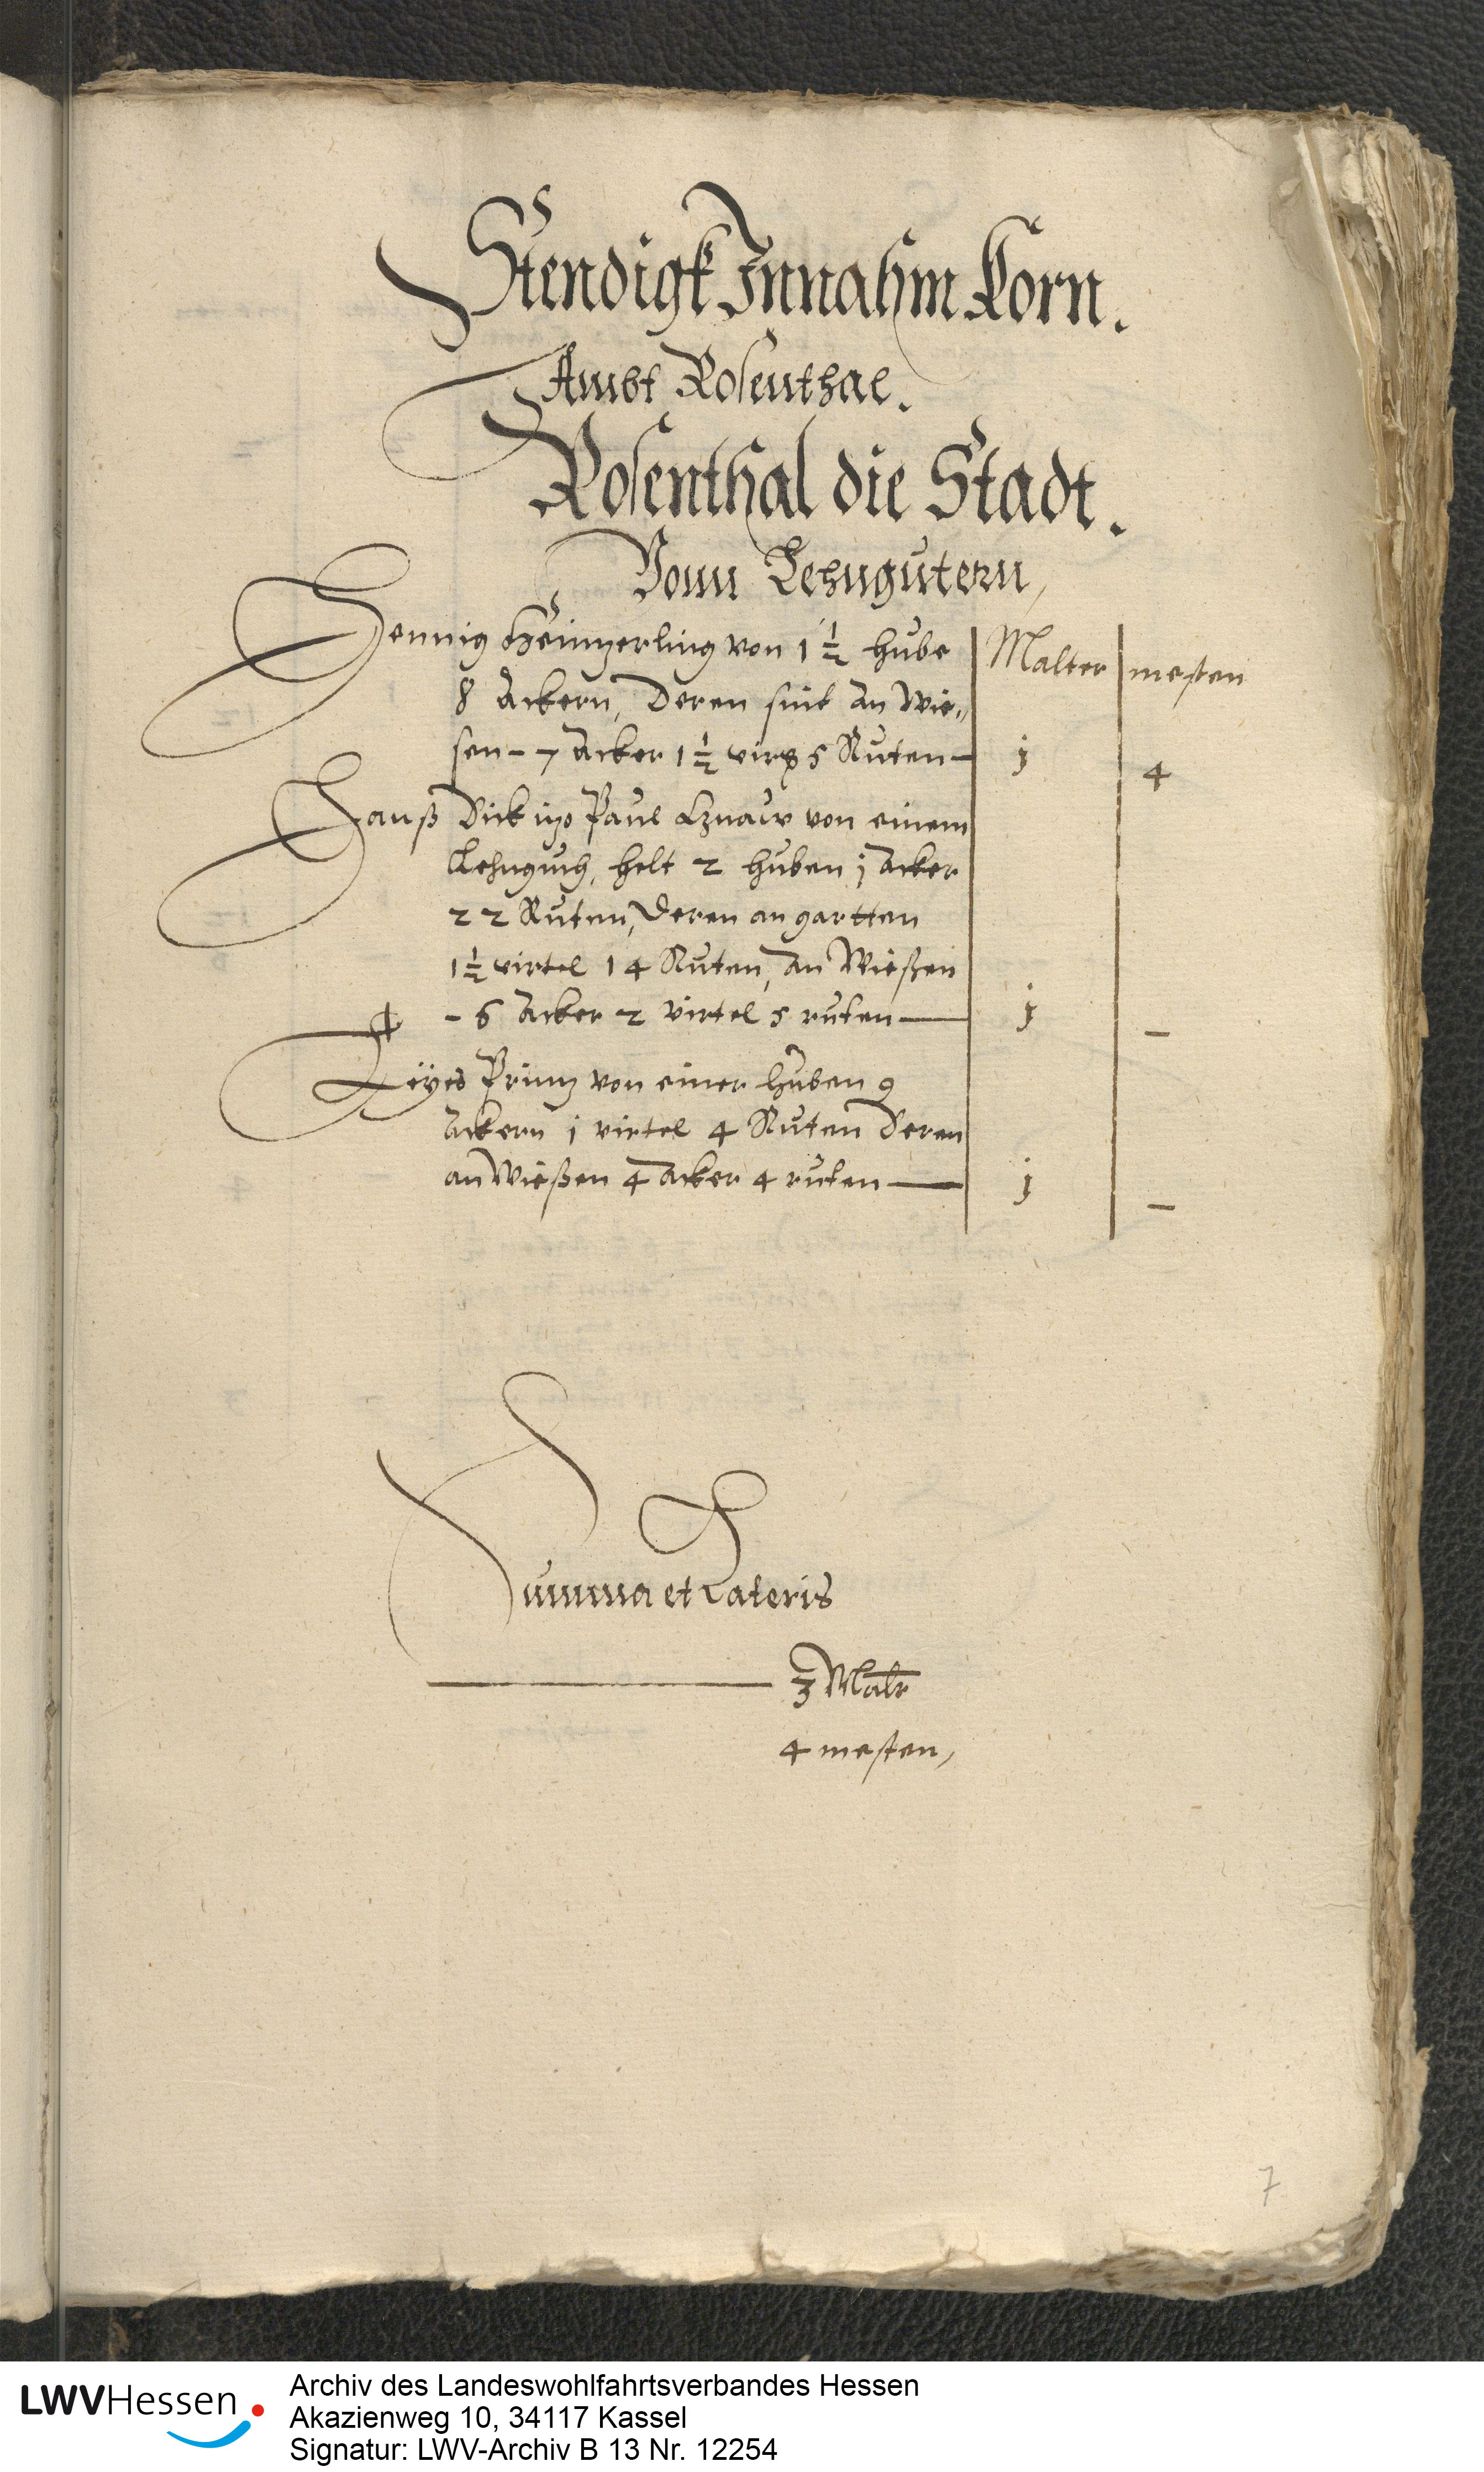 Stendigk Innahm Korn.
Ambt Rosenthal.
Rosenthal die Stadt.
Vonn Lehngütern,
Hennig Heimzerling von 1 1/2 hube | Malter | mesten
8 Ackern, Deren sint An Wie„
sen - 7 Acker 1 1/2 virt 5 Ruten — | j | 4
Hanß Dick itzo Paul von einem
Lehnguth, helt 2 huben j Acker
22 Ruten, Deren an gartten
1 1/2 virtel 14 Ruten, An Wießen
- 6 Acker 2 virtel 5 ruten — | j | —
Printz von einer huben 9
Ackern 1 virtel 4 Ruten Deren
an Wießen 4 Acker 4 ruten — | j | —
Summa et Lateris
— 3 Malr
4 mesten,
7
LWVHessen
Archiv des Landeswohlfahrtsverbandes Hessen
Akazienweg 10, 34117 Kassel
Signatur: LWV-Archiv B 13 Nr. 12254